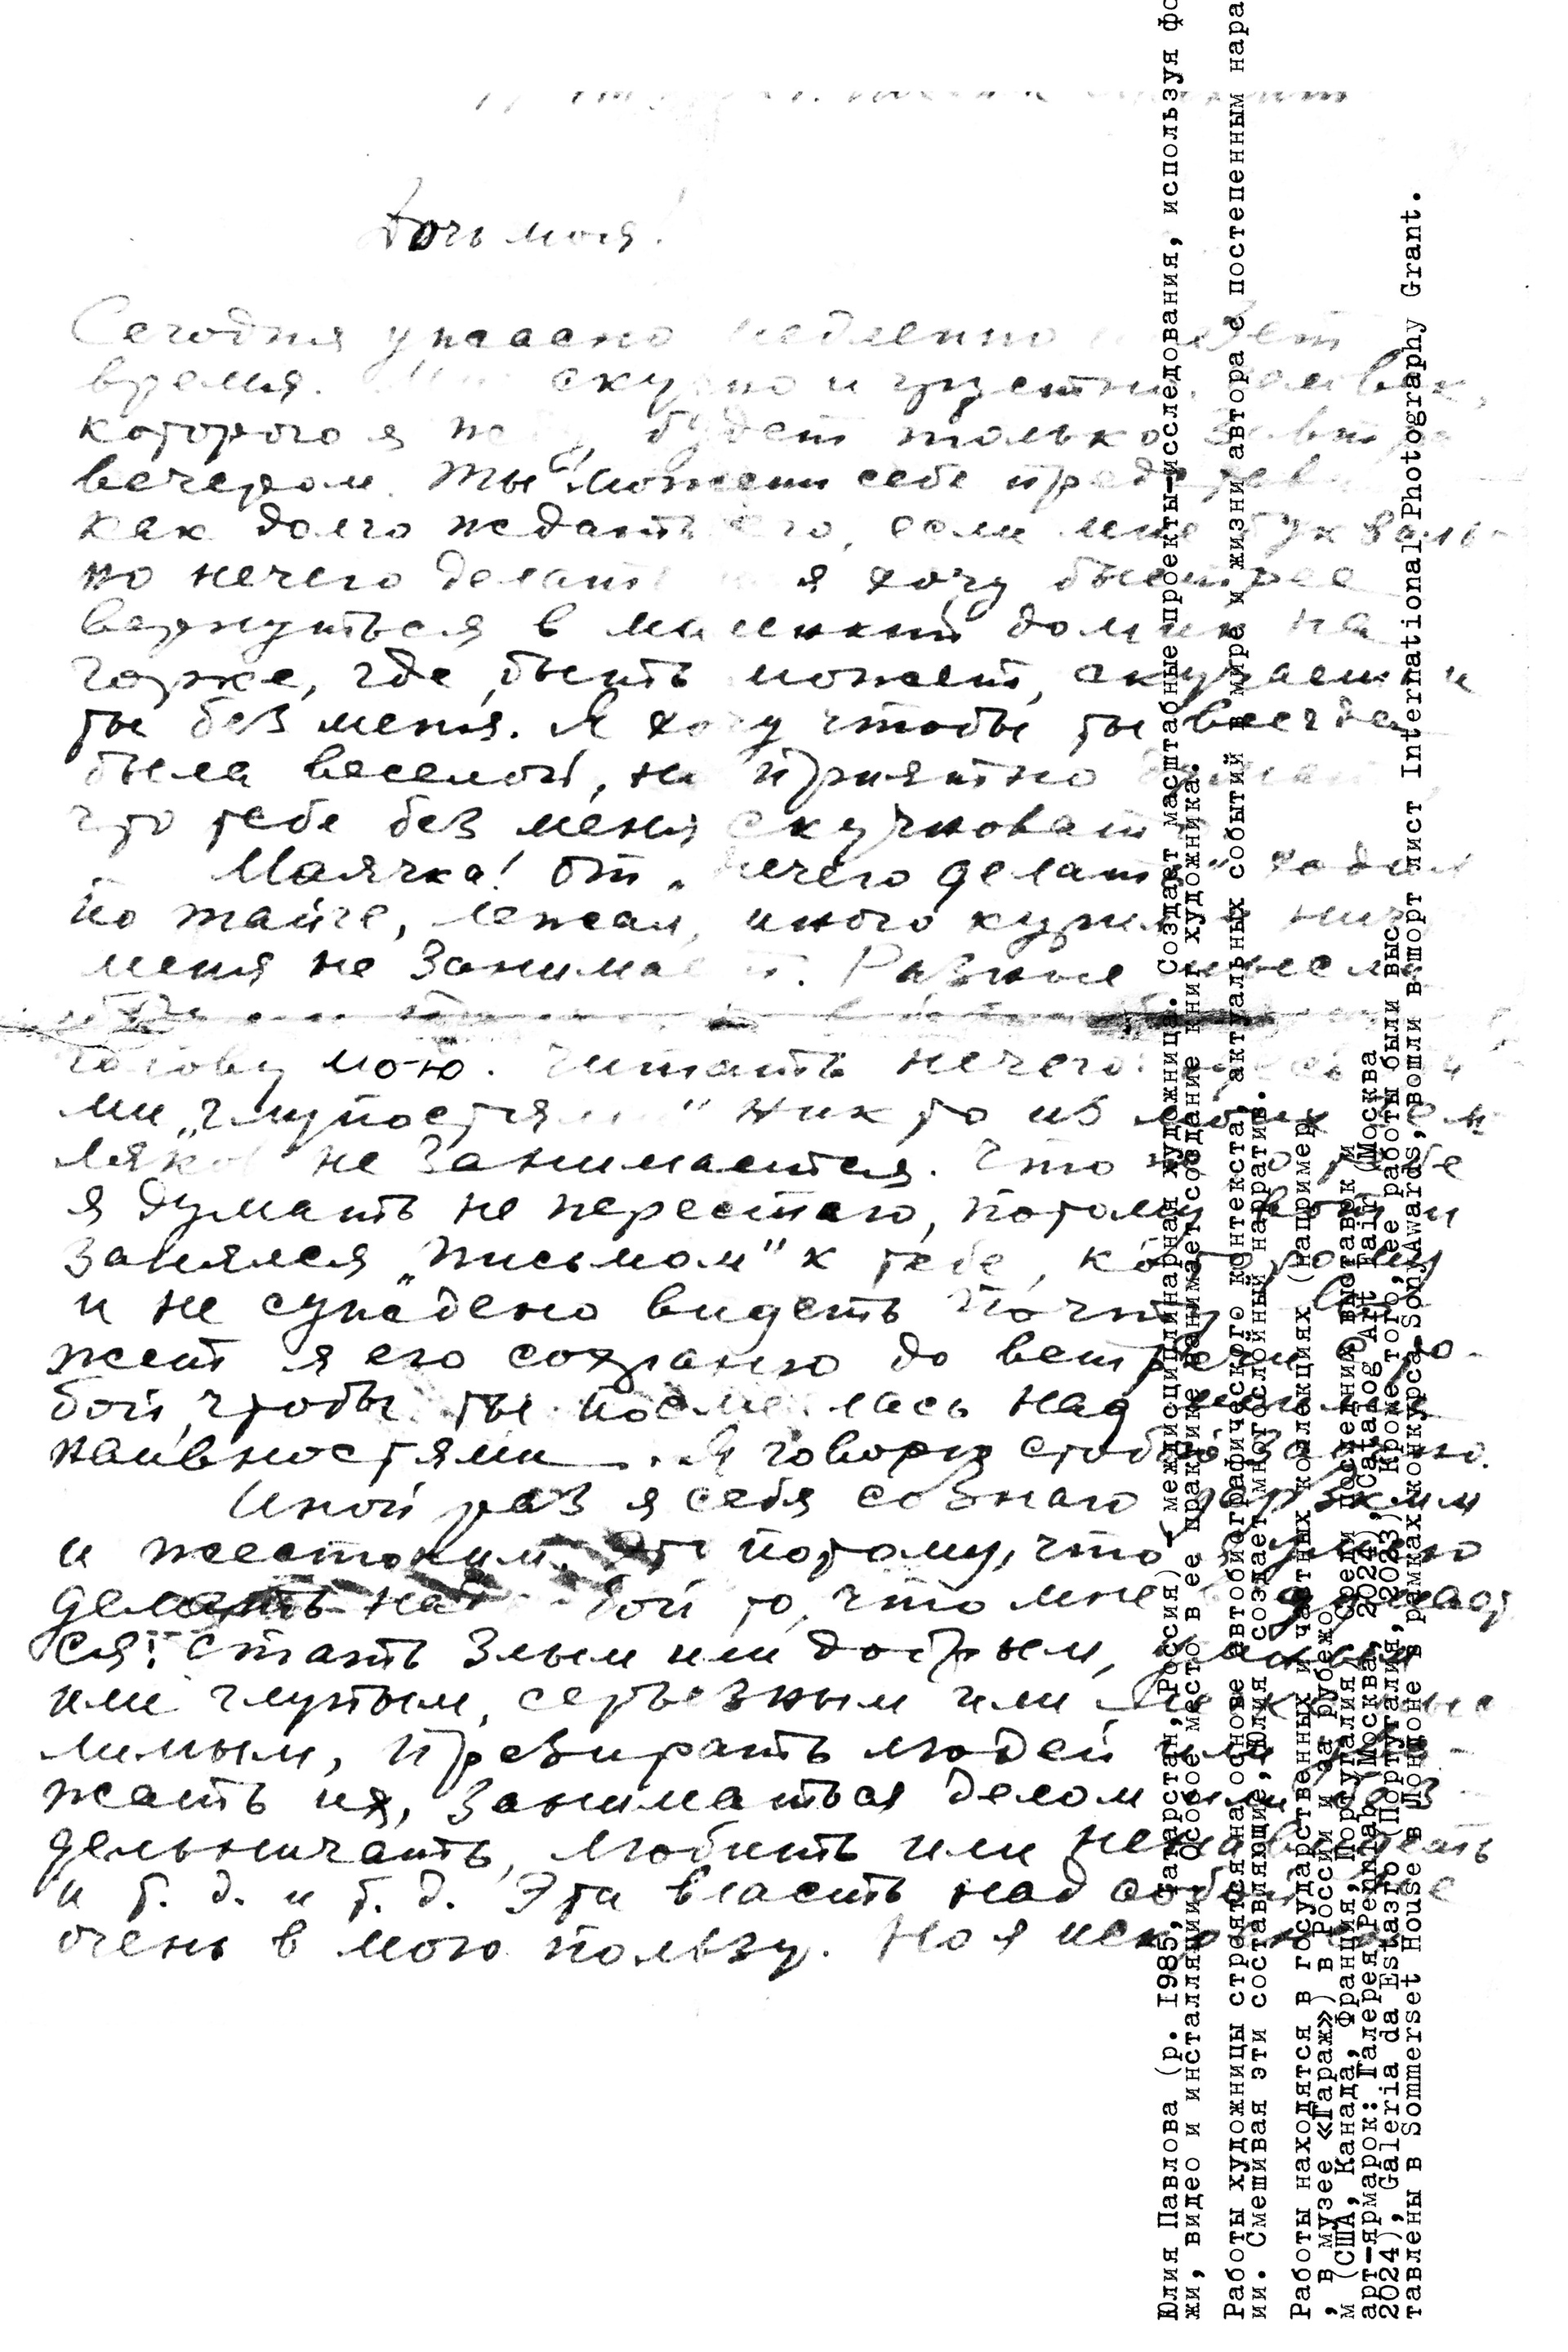 Дочь моя!
Сегодня ужасно медленно идет
время. скучно и грустно.
которого я жду, будет только завтра
вечером. Ты можешь себе представ
как долго ждать его, если мне букваль-
но нечего делать я хочу быстрее
вернуться в маленький домик на
горке, где, быть может, скучаешь и
ты без меня. Я хочу чтобы ты всегда
была веселой, но приятно
что тебе без меня скучновато
Маячка! От „нечего делать" ходил
по тайге, лежал, много курил
меня не занимает. Разные мысли
голову мою. Читать нечего
ми „глупостями" никто из моих зем-
ляков не занимается.
я думать не перестаю, потому вот и
занялся „письмом" к тебе, которому
и не суждено видеть почту.
жет я его сохраню до встречи с то-
бой, чтобы ты посмеялась над
наивностями. Я говорю с тобой
Иной раз я себя сознаю дерзким
и жестоким. потому, что
делать над собой то, что мне
ся: стать злым или добрым,
или глупым, серьезным или
лимым, презирать людей или
жать их, заниматься делом или без-
дельничать, любить или ненавидеть
и т. д. и т. д. Эта власть над собой не
очень в мою пользу. Но я
Юлия Павлова (р. 1985, Татарстан, Россия) - междисциплинарная художница. Создаёт масштабные проекты-исследования, используя фо
жи, видео и инсталляции. Особое место в ее практике занимает создание книг художника.
Работы художницы строятся на основе автобиографического контекста, актуальных событий в мире и жизни автора с постепенным нара
ии. Смешивая эти составляющие, Юлия создает многослойный нарратив.
Работы находятся в государственных и частных коллекциях (например
, в музее «Гараж») в России и за рубежо
м (США, Канада, Франция, Португалия). Среди последних выставок и
арт-ярмарок: Галерея Pennlab (Москва, 2024), Catalog Art Fair (Москва
2024), Galeria da Estazro (Португалия, 2023). Кроме того, ее работы были выс
тавлены в Sommerset House в Лондоне в рамках конкурса Sony Awards, вошли в шорт лист International Photography Grant.